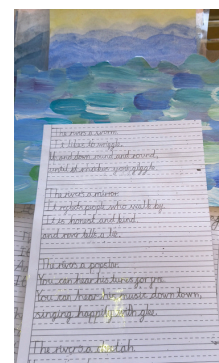 The river's a worm.
It likes to wriggle.
Up and down, round and round,
until it makes you giggle.
The river's a mirror.
It reflects people who walk by.
It is honest and kind
and never tells a lie.
The river's a popstar.
You can hear his tunes for fun.
You can hear his music down town,
singing happily with glee.
The river's a